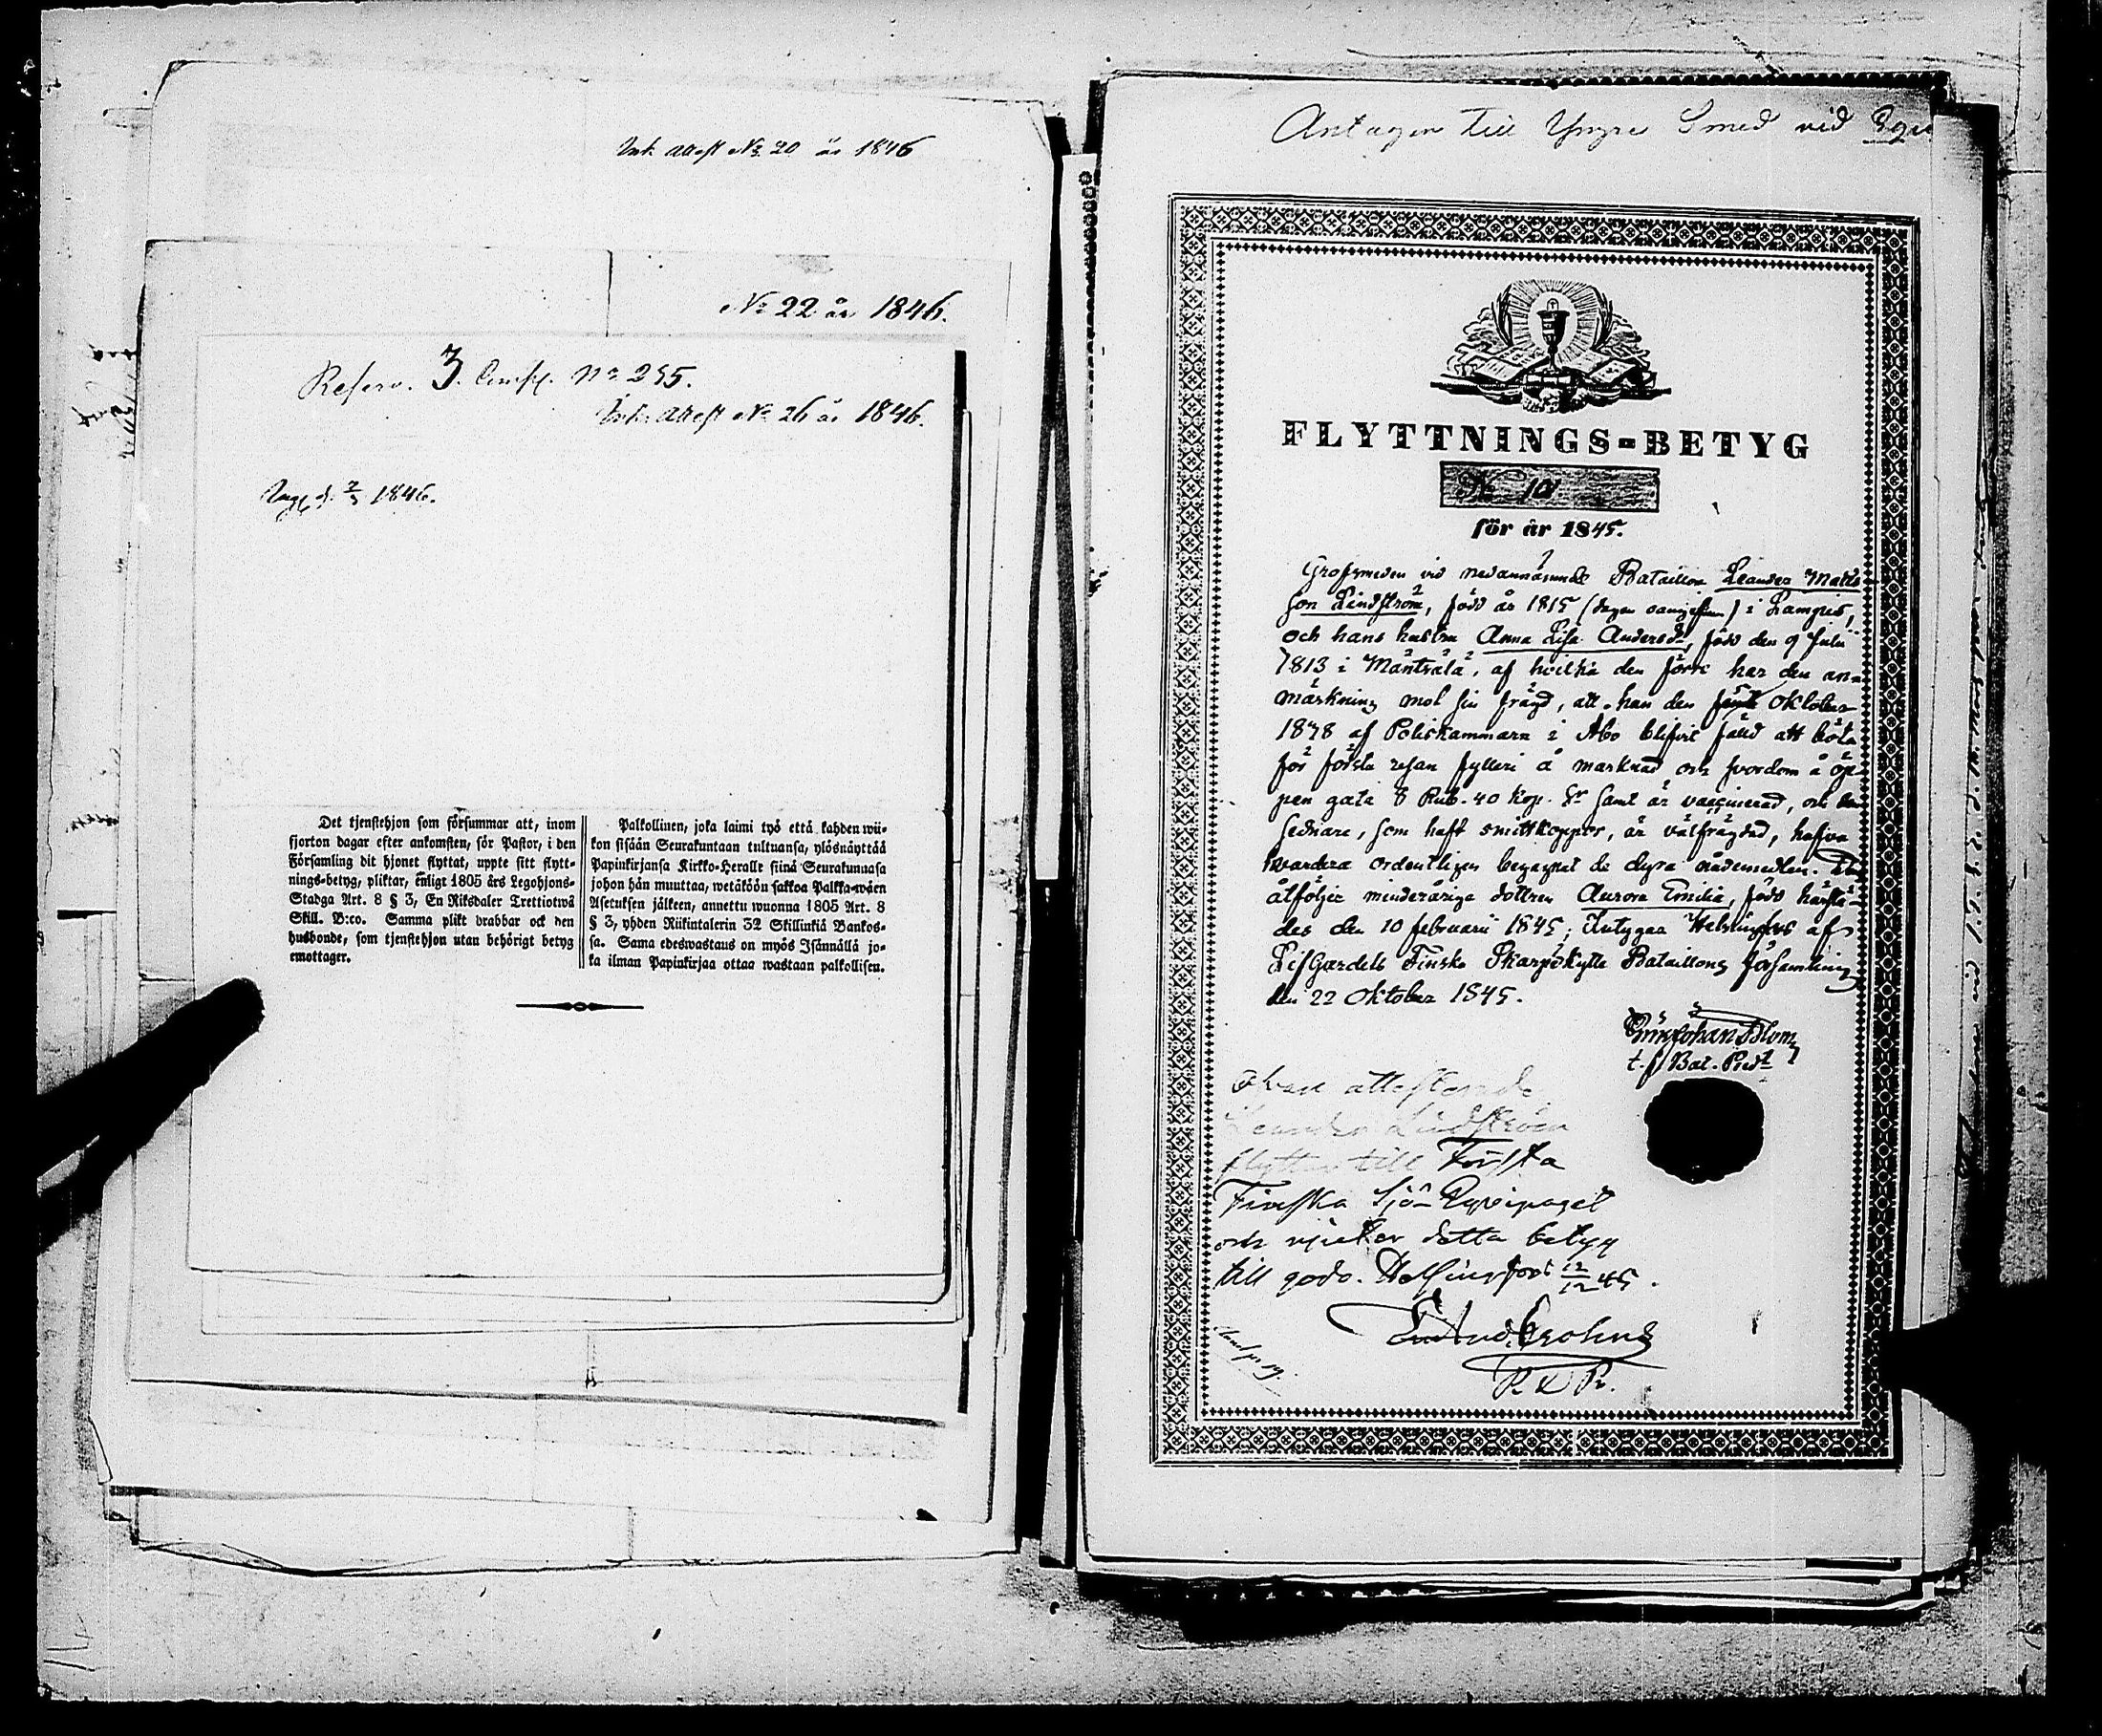 Ink. Attest No 20 år 1846
No 22 år 1846.
Reserv. 3. Comp. No 255.
Ink. Attest No 26 år 1846.
Ingk. d. 2/3 1846.
Det tjenstehjon som försummar att, inom
fjorton dagar efter ankomsten, för Pastor, i den
Församling dit hjonet flyttat, uppte sitt flytt-
nings-betyg, pliktar, enligt 1805 års Legohjons-
Stadga Art. 8 § 3, En Riksdaler Trettiotwå
Skill. B:co. Samma plikt drabbar ock den
husbonde, som tjenstehjon utan behörigt betyg
emottager.
Palkollinen, joka laimi lyö että kahden wii-
kon sisään Seurakuntaan tultuansa, ylösnäyttää
Papinkirjansa Kirkko-Herralle siinä Seurakunnasa
johon hän muuttaa, wetäköön sakkoa Palkka-wäen
Asetuksen jälkeen, annettu wuonna 1805 Art. 8
§ 3, yhden Riikintalerin 32 Skillinkiä Bankos-
sa. Sama edeswastaus on myös Isännällä jo-
ka ilman Papinkirjaa ottaa wastaan palkollisen.
Antagen till Yngre Smed vid
FLYTTNINGS-BETYG
No 101
för år 1845.
Grofsmeden vid nedannämnde Bataillon Leander Matts
son Lindström, född år 1815 (dagen oangifven) i Lampis,
och hans hustru Anna Lisa Andersdr, född den 9 Julii
1813 i Mäntsälä, af hvilka den förre har den an-
märkning mot sin frägd, att han den Oktober
18 8 af Poliskammarn i Åbo blifvit fälld att böta
för första resan fylleri å marknad och svordom å öp-
pen gata 8 Rub. 40 Kop. Sr samt är vaccinerad, och den
sednare, som haft smittkoppor, är välfrägdad, hafva
hvardera ordentligen begagnat de dyra nådemedlen. De
åtföljes minderåriga dottren Aurora Emilia, född härstä-
des den 10 februarii 1845; Intygas Helsingfors af
LifGardets Finska Skarpskytte Bataillons församling
den 22 Oktober 1845.
Johan Blom
t. f. Bat. Pred.
Ofvan attesterade
Leander Lindström
flyttar till Första
Finska Sjö Equipaget
och njuter detta betyg
till godo. Helsingfors 12/12 45.